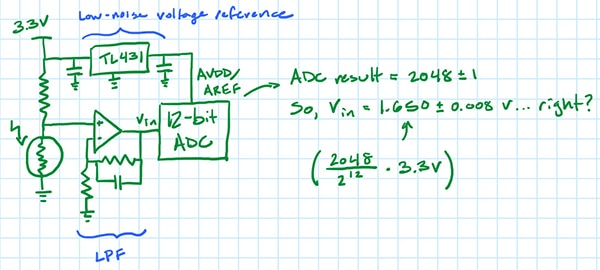 Low-noise voltage reference
3.3V
TL431
AVDD/
AREF
ADC result = 2048 ± 1
So, Vin = 1.650 ± 0.008 V... right?
Vin
12-bit
ADC
+
-
(2048/2^12 · 3.3V)
LPF